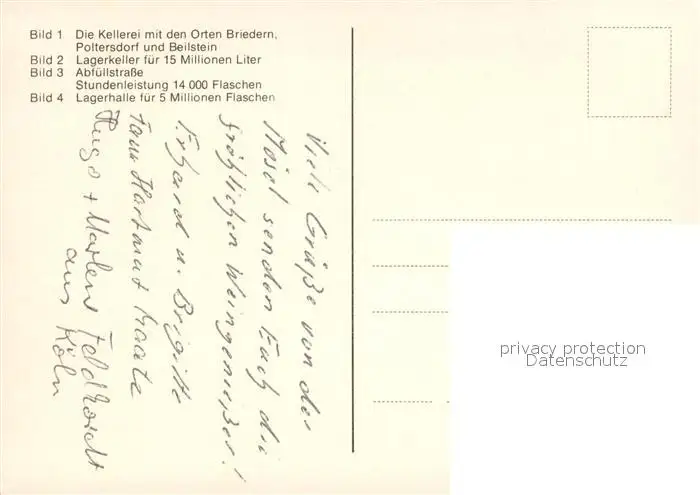 Bild 1 Die Kellerei mit den Orten Briedern,
Poltersdorf und Beilstein
Bild 2 Lagerkeller für 15 Millionen Liter
Bild 3 Abfüllstraße
Stundenleistung 14 000 Flaschen
Bild 4 Lagerhalle für 5 Millionen Flaschen
Viele Grüße von der
Mosel senden Euch die
fröhlichen Weingenießer!
Erhard u. Brigitte
Fam. Hartmut
Hugo + Marlene
aus Köln
privacy protection
Datenschutz